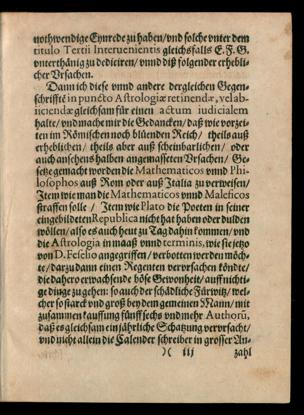 nothwendige Eynrede zu haben/ vnd solche vnter dem
titulo Tertii Interuenientis gleichsfalls E. F. G.
vnterthänig zu dediciren/ vnnd diß folgender erhebli-
cher Vrsachen.
Dann ich diese vnnd andere dergleichen Gegen-
schrifft in puncto Astrologiæ retinendæ, vel ab-
iiciendæ gleichsam für einen actum iudicialem
halte/ vnd mache mir die Gedancken/ daß wie vorzei-
ten im Römischen noch blüenden Reich/ theils auß
erheblichen/ theils aber auß scheinbarlichen/ oder
auch ansehens halben angemassten Vrsachen/ Ge-
setze gemacht worden die Mathematicos vnnd Phi-
losophos auß Rom oder auß Italia zu verweisen/
Item wie man die Mathematicos vnnd Maleficos
straffen solle/ Item wie Plato die Poeten in seiner
eingebildeten Republica nicht hat haben oder dulden
wöllen/ also es auch heut zu Tag dahin kommen/ vnd
die Astrologia in maaß vnnd terminis, wie sie jetzo
von D. Feselio angegriffen/ verbotten werden möch-
te/ darzu dann einen Regenten vervrsachen köndte/
die dahero erwachsende böse Gewonheit/ auff nichti-
ge dinge zu gehen: so auch der schädliche Fürwitz/ wel-
cher so starck vnd groß bey dem gemeinen Mann/ mit
zusammen kauffung fünff sechs vnd mehr Authorũ,
daß es gleichsam ein jährliche Schatzung vervrsacht/
vnd nicht allein die Calender schreiber in grosser An-
)( iij zahl